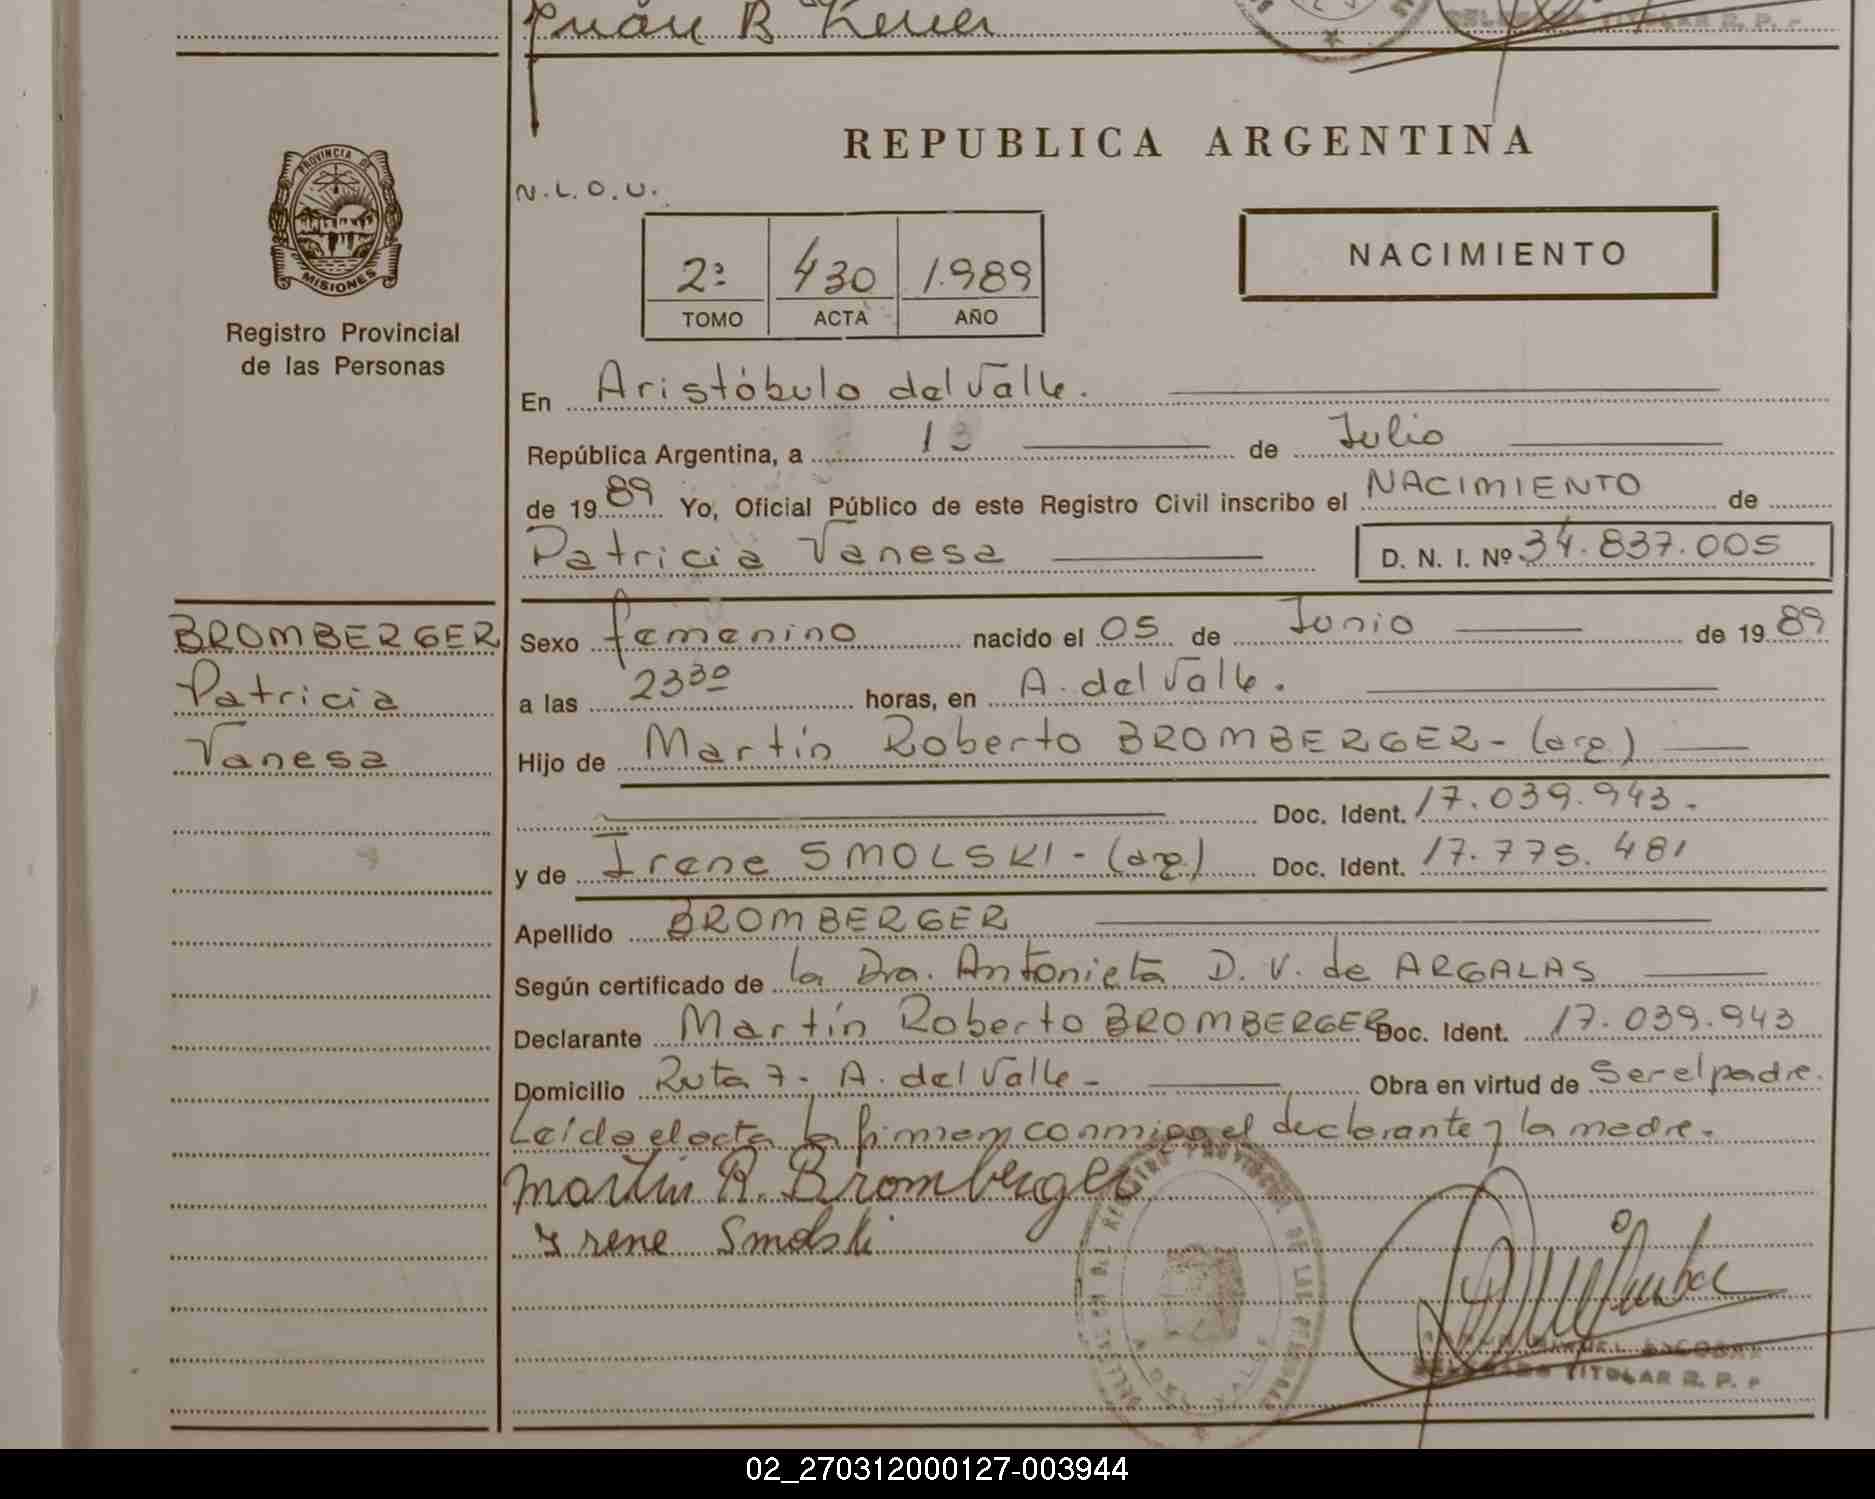 Juan B
REPUBLICA ARGENTINA
N.L.O.U.
PROVINCIA DE
MISIONES
Registro Provincial
de las Personas
2ª 430 1.989
TOMO ACTA AÑO
NACIMIENTO
En Aristóbulo del Valle.
República Argentina, a 13 de Julio
de 1989 Yo, Oficial Público de este Registro Civil inscribo el NACIMIENTO de
Patricia Vanesa D. N. I. Nº 34.837.005
BROMBERGER
Patricia
Vanesa
Sexo femenino nacido el 05 de Junio de 1989
a las 23³⁰ horas, en A. del Valle.
Hijo de Martín Roberto BROMBERGER - (arg.)
Doc. Ident. 17.039.943.
y de Irene SMOLSKI - (arg.) Doc. Ident. 17.775.481
Apellido BROMBERGER
Según certificado de la Dra. Antonieta D. V. de ARGALAS
Declarante Martín Roberto BROMBERGER Doc. Ident. 17.039.943
Domicilio Ruta 7 - A. del Valle - Obra en virtud de Ser el padre.
Leída el acta la firman conmigo el declarante y la madre.
Martin R. Bromberger
Irene Smolski
REGISTRO PROVINCIAL DE LAS PERSONAS
MANUEL ESCOBAR
DELEGADO TITULAR R. P. P
02_270312000127-003944